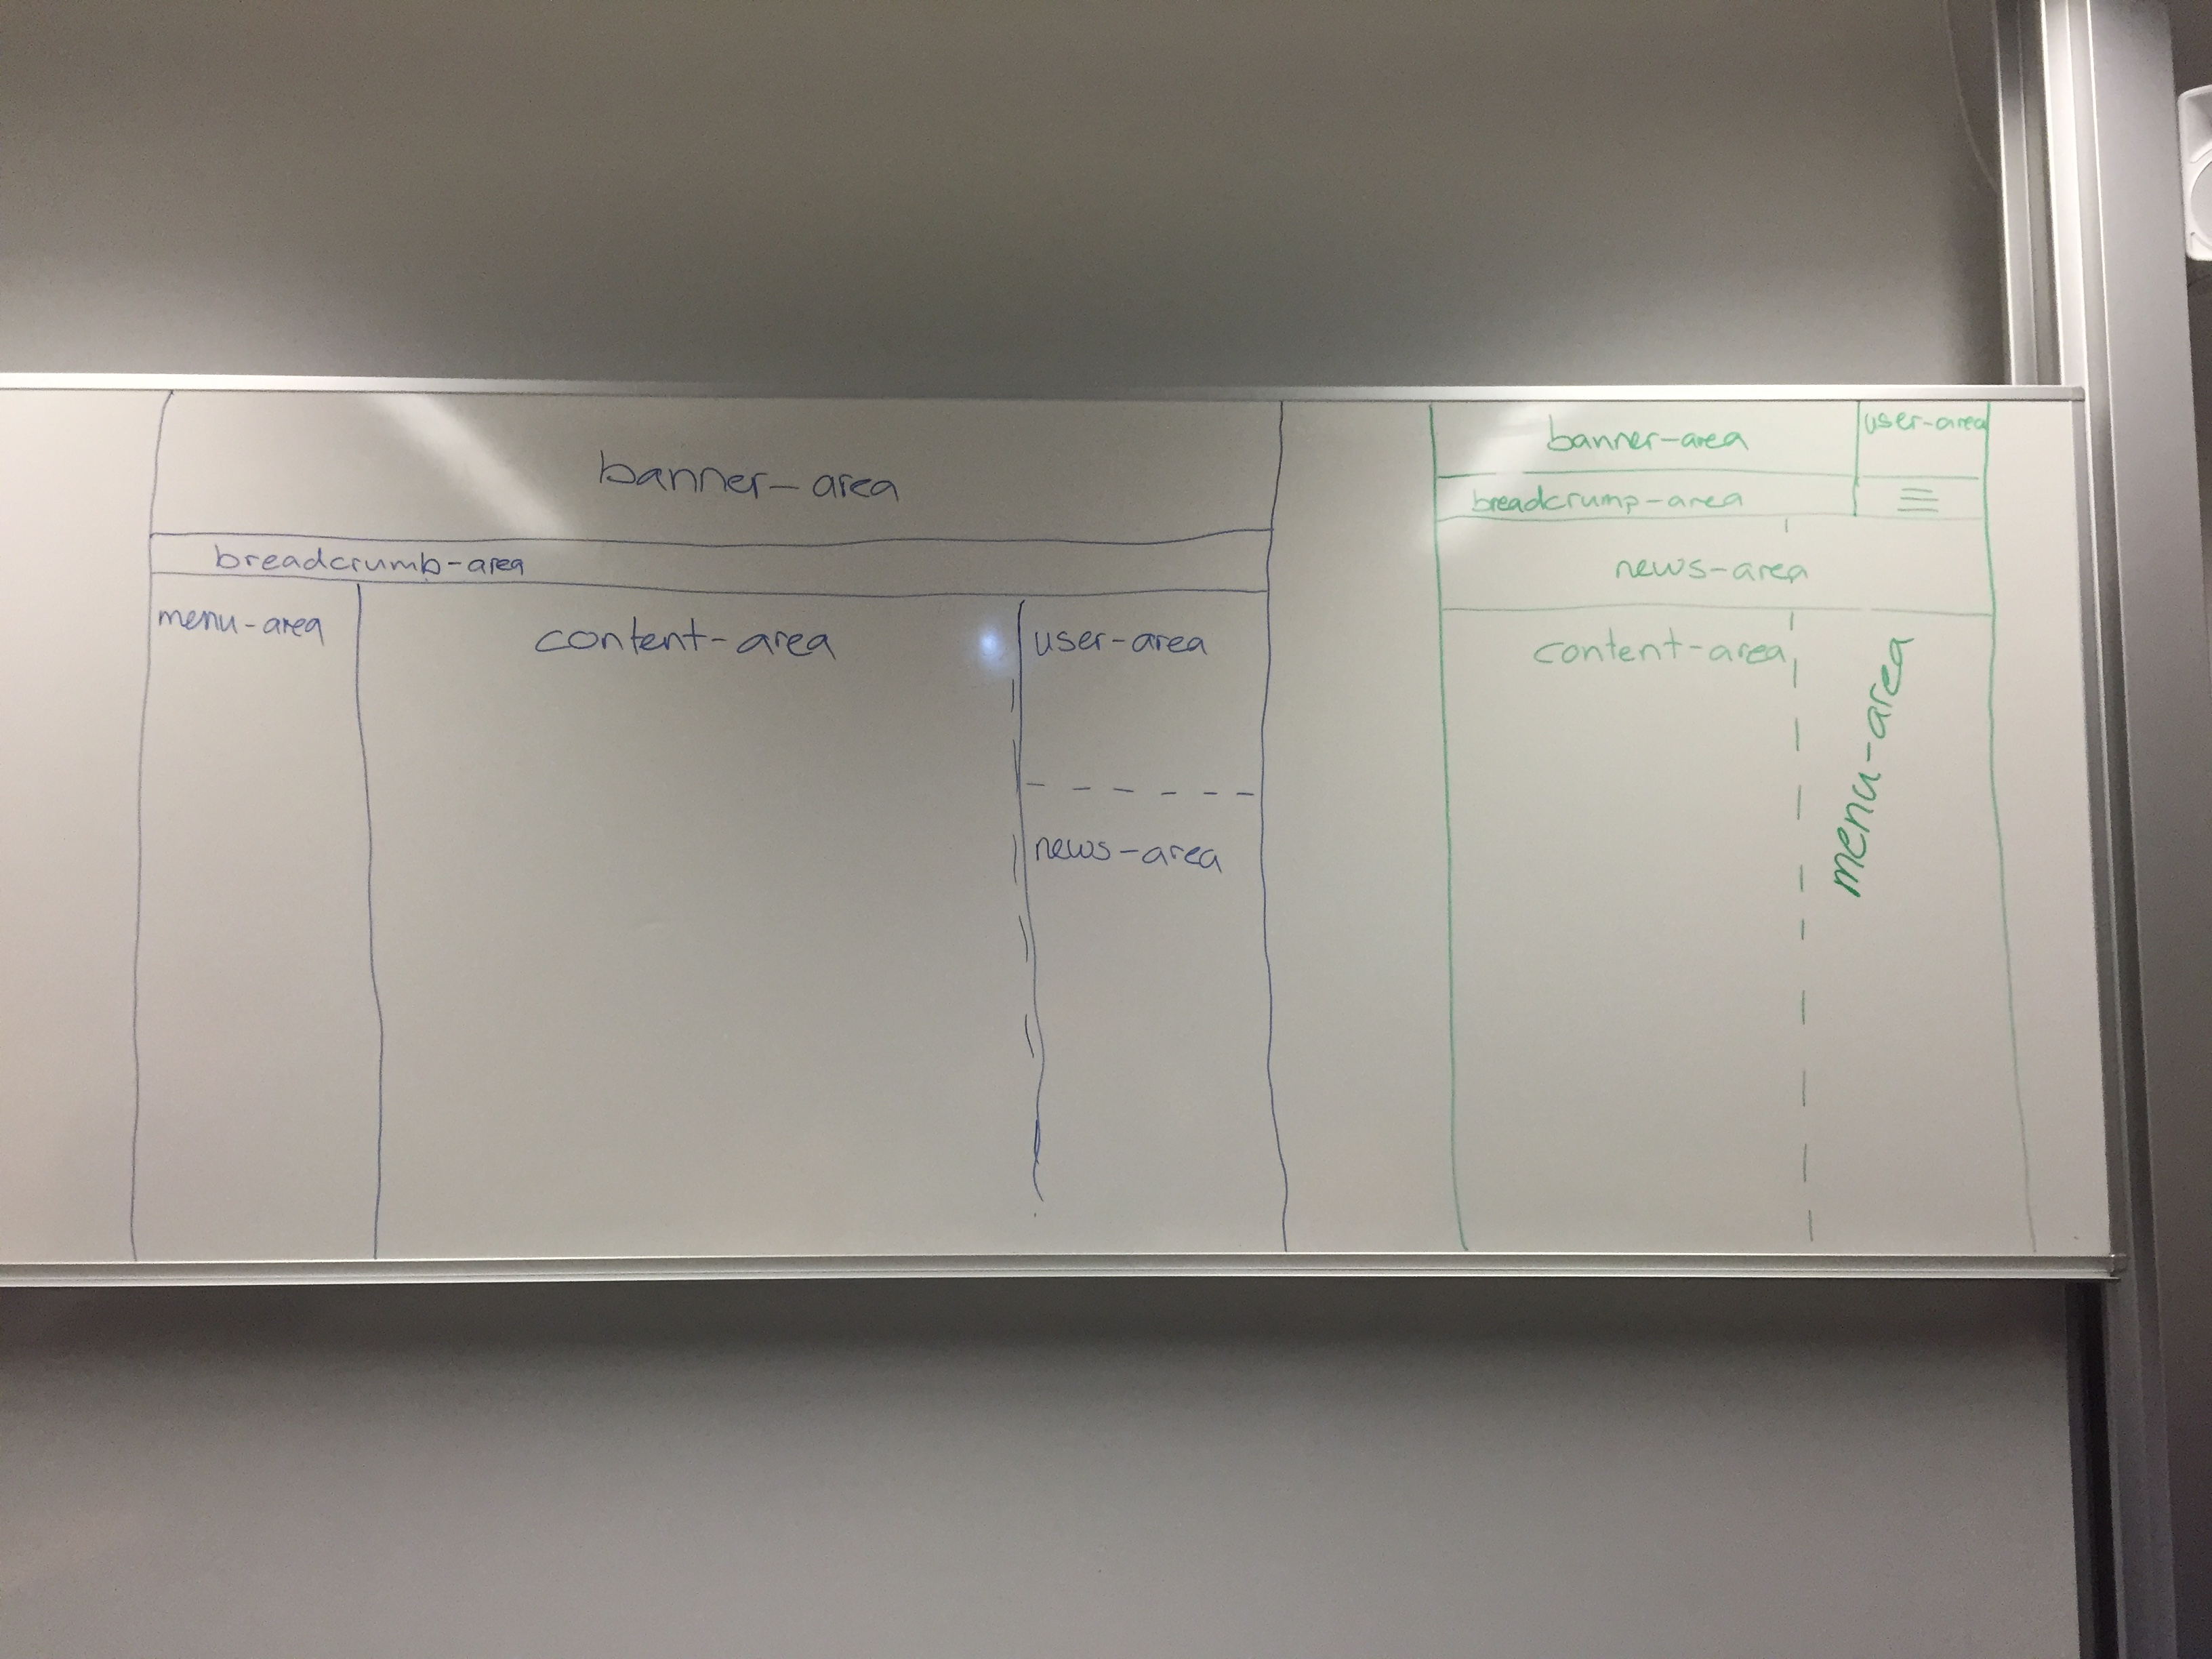 banner-area
breadcrumb-area
menu-area
content-area
user-area
news-area
banner-area
user-area
breadcrump-area
news-area
content-area
menu-area